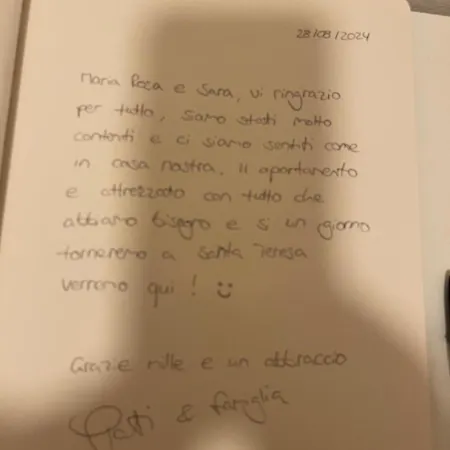 28/08/2024
Maria Rosa e Sara, vi ringrazio
per tutto, siamo stati molto
contenti e ci siamo sentiti come
in casa nostra. Il apartamento
e attrezzato con tutto che
abbiamo bisogno e si un giorno
torneremo a Santa Teresa
verremo qui ! :)
Grazie mille e un abbraccio
& famiglia